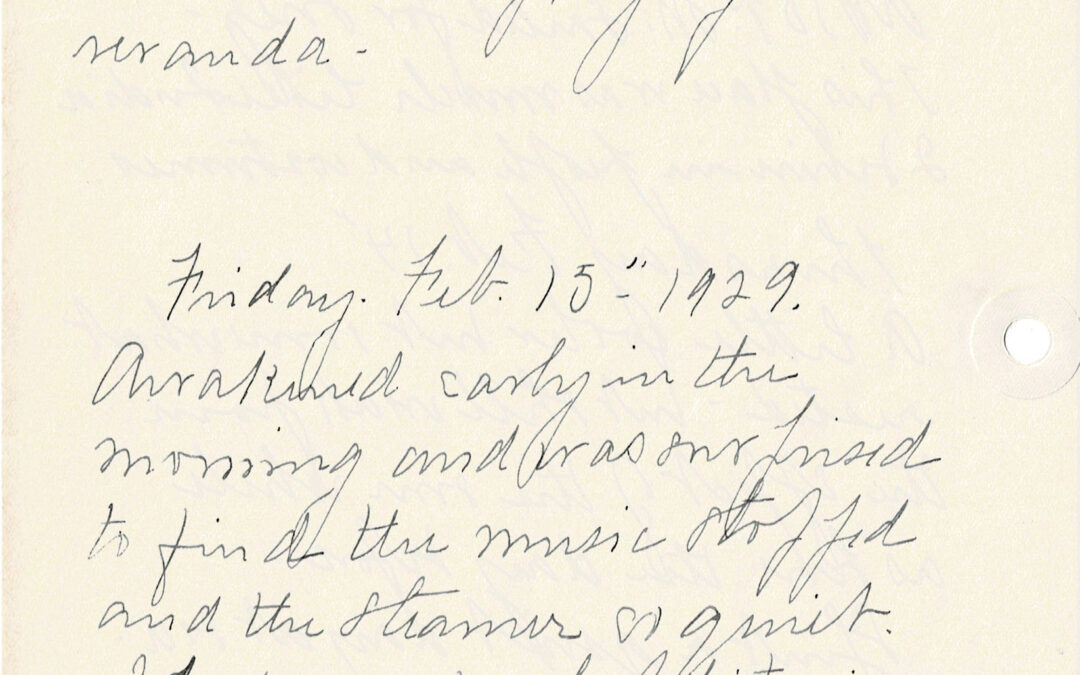 veranda -
Friday. Feb. 15" 1929.
Awakened early in the
morning and was surprised
to find the music stopped
and the steamer so quiet.